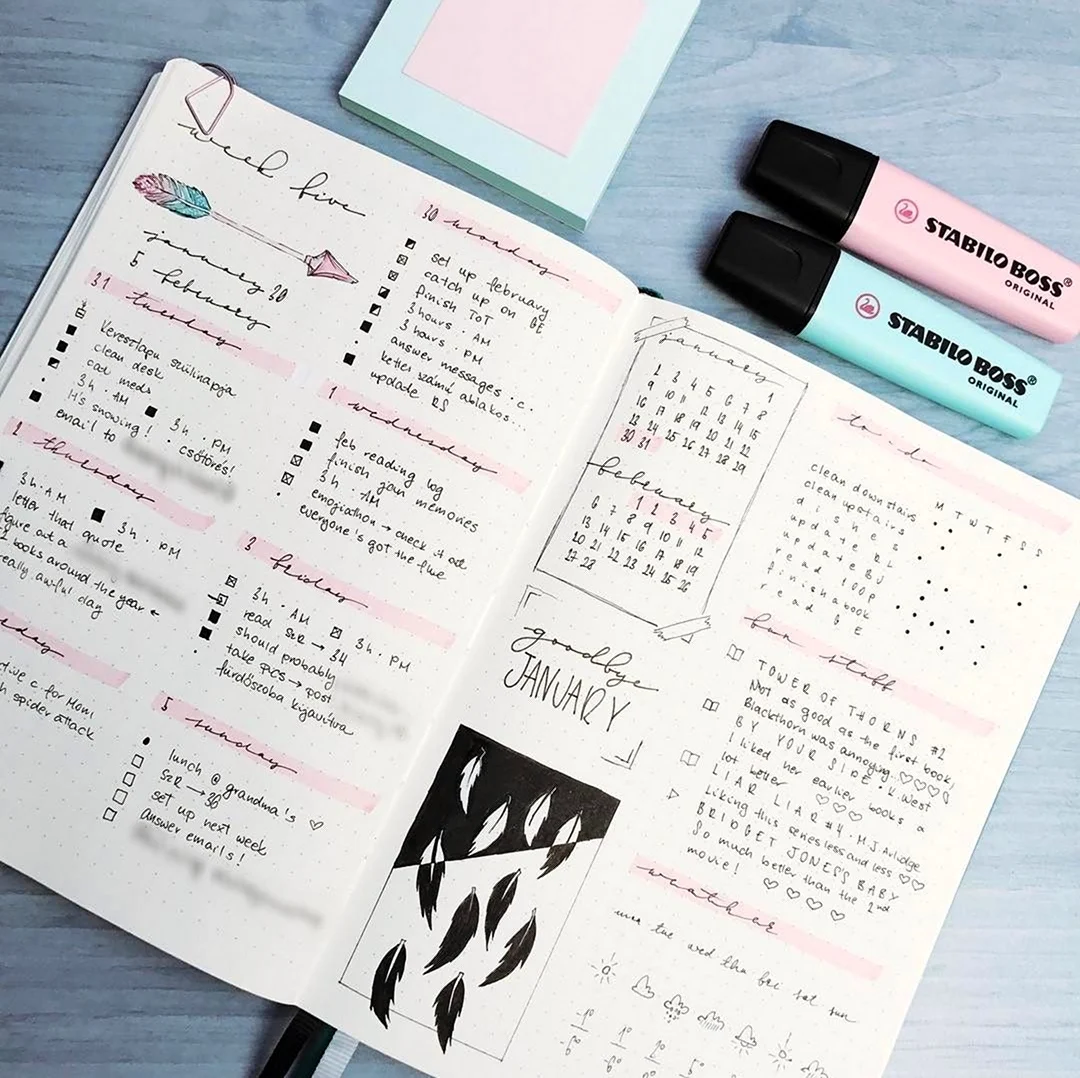 week five
january 30
5 february
30 monday
set up february
catch up on GE
finish ToT
3 hours · AM
3 hours · PM
answer messages · c.
kettes számú ablakos...
update RS
31 tuesday
Keresztapu szülinapja
clean desk
cat meds
3h · AM 3h · PM
It's snowing! · csőtörés!
email to
1 wednesday
feb reading log
finish join memories
3h AM
emojiathon → check it out
everyone's got the flue
2 thursday
3h · AM 3h · PM
letter that quote
figure out a
12 books around the year ←
really awful day
3 friday
3h · AM 3h · PM
read S&R → 34
should probably
take PCS → post
fürdőszoba kijavítva
c for Mom
spider attack
5 sunday
lunch @ grandma's ♡
S&R → 36
set up next week
answer emails!
january
1
2 3 4 5 6 7 8
9 10 11 12 13 14 15
16 17 18 19 20 21 22
23 24 25 26 27 28 29
30 31
february
1 2 3 4 5
6 7 8 9 10 11 12
13 14 15 16 17 18 19
20 21 22 23 24 25 26
27 28
goodbye
JANUARY
to-do
M T W T F S S
clean downstairs
clean upstairs
dishes
update RL
update BJ
read 100p
finish a book
read GE
fun stuff
TOWER OF THORNS #2
Not as good as the first book,
Blackthorn was annoying. ♡♡♡♡
BY YOUR SIDE · K. West
I liked her earlier books a
lot better ♡♡♡
LIAR LIAR #4 · M.J. Arlidge
Liking this series less and less ♡♡
BRIDGET JONES'S BABY
So much better than the 2nd
movie! ♡♡♡♡
weather
mon tue wed thu fri sat sun
STABILO BOSS®
ORIGINAL
STABILO BOSS®
ORIGINAL